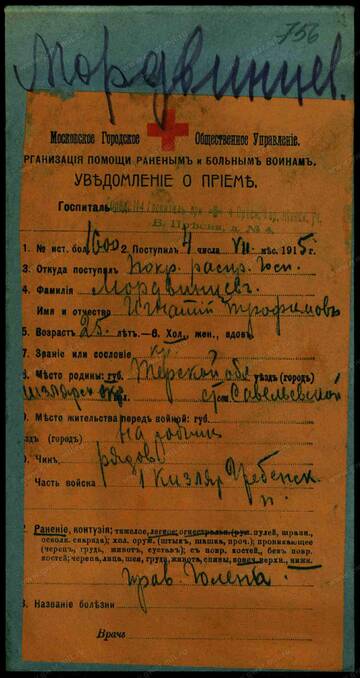 756
Мордвинцев.
Московское Городское Общественное Управленіе.
РГАНИЗАЦІЯ ПОМОЩИ РАНЕНЫМЪ и БОЛЬНЫМЪ ВОИНАМЪ.
УВѢДОМЛЕНІЕ О ПРІЕМѢ.
Госпиталь
В. Прѣсня, д. № 4
1. № ист. бол. 1600 2. Поступилъ 4 числа VII мѣс. 1915 г.
3. Откуда поступилъ Покр. распр. Гос.
4. Фамилія Мордвинцевъ
Имя и отчество Игнатій Трофимовъ
5. Возрастъ 25 лѣтъ.—6. Хол., жен., вдов.
7. Званіе или сословіе
8. Мѣсто родины: губ. Терской обл уѣздъ (городъ)
ст. Савельевской
9. Мѣсто жительства передъ войной: губ.
здъ (городъ) На родинѣ
0. Чинъ рядов
Часть войска 1 Кизляр Гребенск.
п.
2 Раненіе, контузія: тяжелое, легкое; огнестрѣльн. (руж. пулей, шрапн.,
осколк. снаряда); хол. оруж. (штыкъ, шашка, проч.); проникающее
(черепъ, грудь, животъ, суставъ); съ повр. костей, безъ повр.
костей; черепа, лица, шеи, груди, живота, спины, конеч. верхн., нижн.
прав. голень.
3. Названіе болѣзни
Врачъ